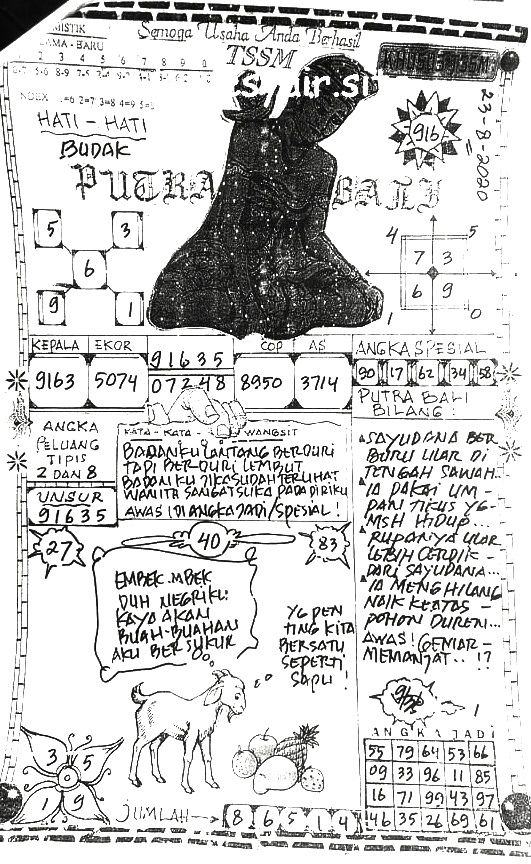 MISTIK
LAMA - BARU
Semoga Usaha Anda Berhasil
TSSM
KHUSUS TSSM
2 3 4 5 6 7 8 9 0
INDEX
=6 2=7 3=8 4=9 5=
HATI - HATI
BUDAK
PUTRA BALI
916
23-8-2020
5 3
6
9 1
4 5
7 3
6 9
1 0
KEPALA EKOR COP AS
9163 5074 91635 07248 8950 3714
ANGKA SPESIAL
90 17 62 34 58
PUTRA BALI
BILANG :
ANGKA
PELUANG
TIPIS
2 DAN 8
UNSUR
91635
KATA - KATA WANGSIT
BADANKU LANTANG BERDURI
TAPI BERDURI LEMBUT
BADANKU JIKA SUDAH TERLIHAT
WANITA SANGAT SUKA PADA DIRIKU
AWAS ! DI ANGKA JADI / SPESIAL !
SAYUDANA BER
BURU ULAR DI
TENGAH SAWAH..
IA PAKAI UM -
PAN TIKUS YG -
MSH HIDUP...
RUPANYA ULAR
LEBIH CERDIK -
DARI SAYUDANA...
IA MENGHILANG
NAIK KEATAS -
POHON DUREN...
AWAS ! GEMAR -
MEMANJAT.. !?
27 40 83
EMBEK..MBEK
DUH NEGRIKU
KAYA AKAN
BUAH-BUAHAN
AKU BERSUKUR
YG PEN
TING KITA
BERSATU
SEPERTI
SAPU !
3 5
1 9
JUMLAH → 8 6 5 1 4
ANGKA JADI
55 79 64 53 66
09 33 96 11 85
16 71 99 43 97
46 35 26 69 61